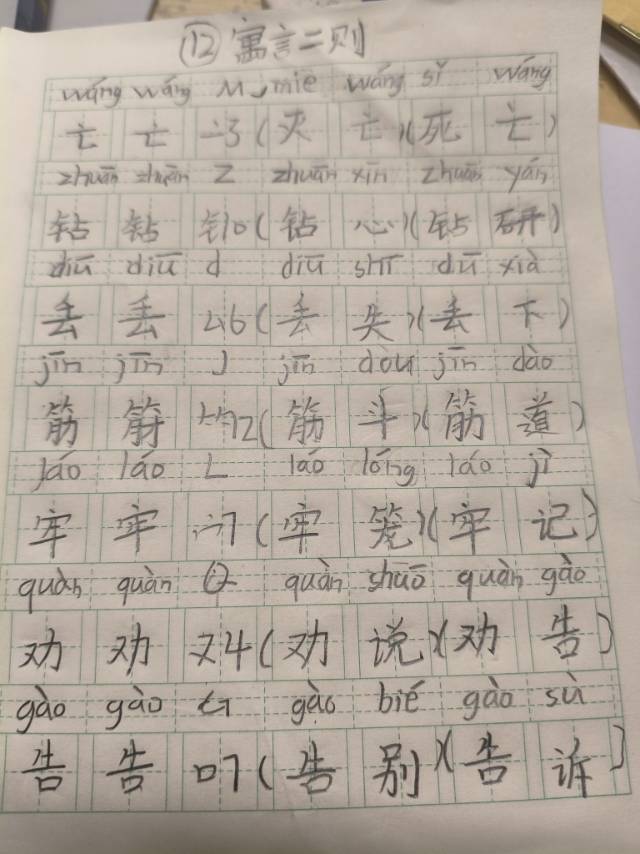 ⑫寓言二则
wáng wáng M miè wáng sǐ wáng
亡 亡 亠3(灭 亡)(死 亡)
zhuān zhuān Z zhuān xīn zhuān yán
钻 钻 钅10(钻 心)(钻 研)
diū diū d diū shī dū xià
丢 丢 厶6(丢 失)(丢 下)
jīn jīn J jīn dou jīn dào
筋 筋 ⺮12(筋 斗)(筋 道)
láo láo L láo lóng láo jì
牢 牢 宀7(牢 笼)(牢 记)
quàn quàn Q quàn shuō quàn gào
劝 劝 又4(劝 说)(劝 告)
gào gào G gào bié gào sù
告 告 口7(告 别)(告 诉)